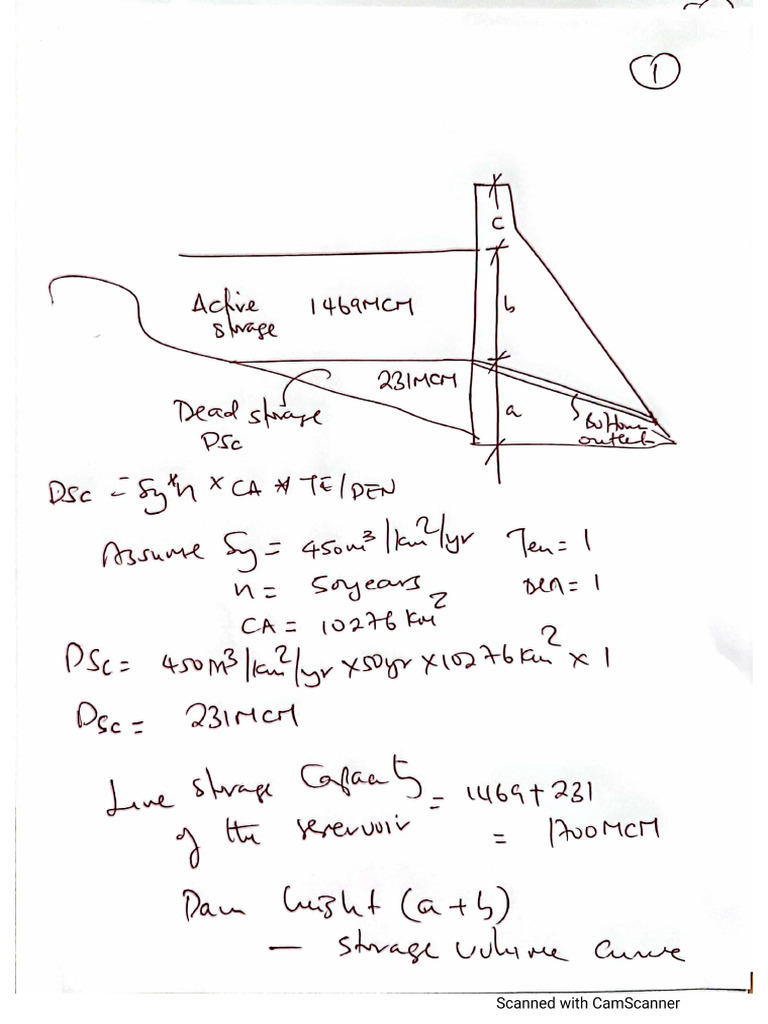 1
c
Active 1469MCM
storage
b
231MCM
Dead storage
DSc
a
Bottom
outlet
DSc = Sy*n × CA * TE/DEN
Assume Sy = 450m³/km²/yr Ten = 1
n = 50years Den = 1
CA = 10276 km²
DSc = 450m³/km²/yr × 50yr × 10276km² × 1
DSc = 231MCM
Live storage Capacity = 1469 + 231
of the reservoir = 1700MCM
Dam height (a + b)
— storage volume curve
Scanned with CamScanner